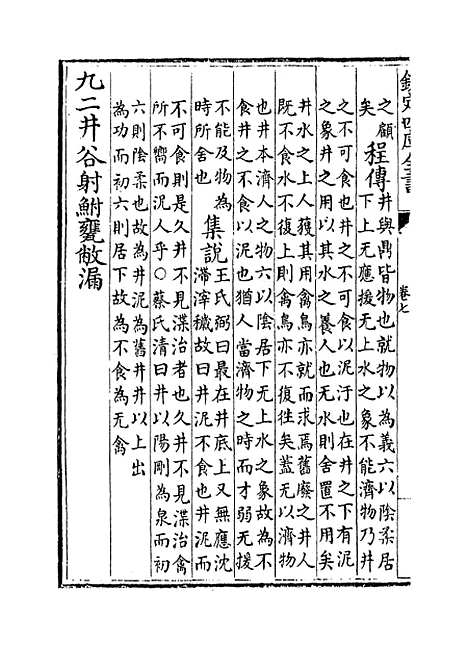 欽定四庫全書
卷七
之顧
矣
程傳
井與鼎皆物也就物以為義六以陰柔居
下上无應援无上水之象不能濟物乃井
之不可食也井之不可食以泥汙也在井之下有泥
之象井之用以其水之養人也无水則舍置不用矣
井水之上人獲其用禽鳥亦就而求焉舊廢之井人
既不食水不復上則禽鳥亦不復徃矣蓋无以濟物
也井本濟人之物六以陰居下无上水之象故為不
食井之不食以泥也猶人當濟物之時而才弱无援
不能及物為
時所舍也
集說
王氏弼曰最在井底上又無應沈
滯滓穢故曰井泥不食也井泥而
不可食則是久井不見渫治者也久井不見渫治禽
所不嚮而泥人乎○蔡氏清曰井以陽剛為泉而初
六則陰柔也故為井泥為舊井井以上出
為功而初六則居下故為不食為无禽
九二井谷射鮒甕敝漏